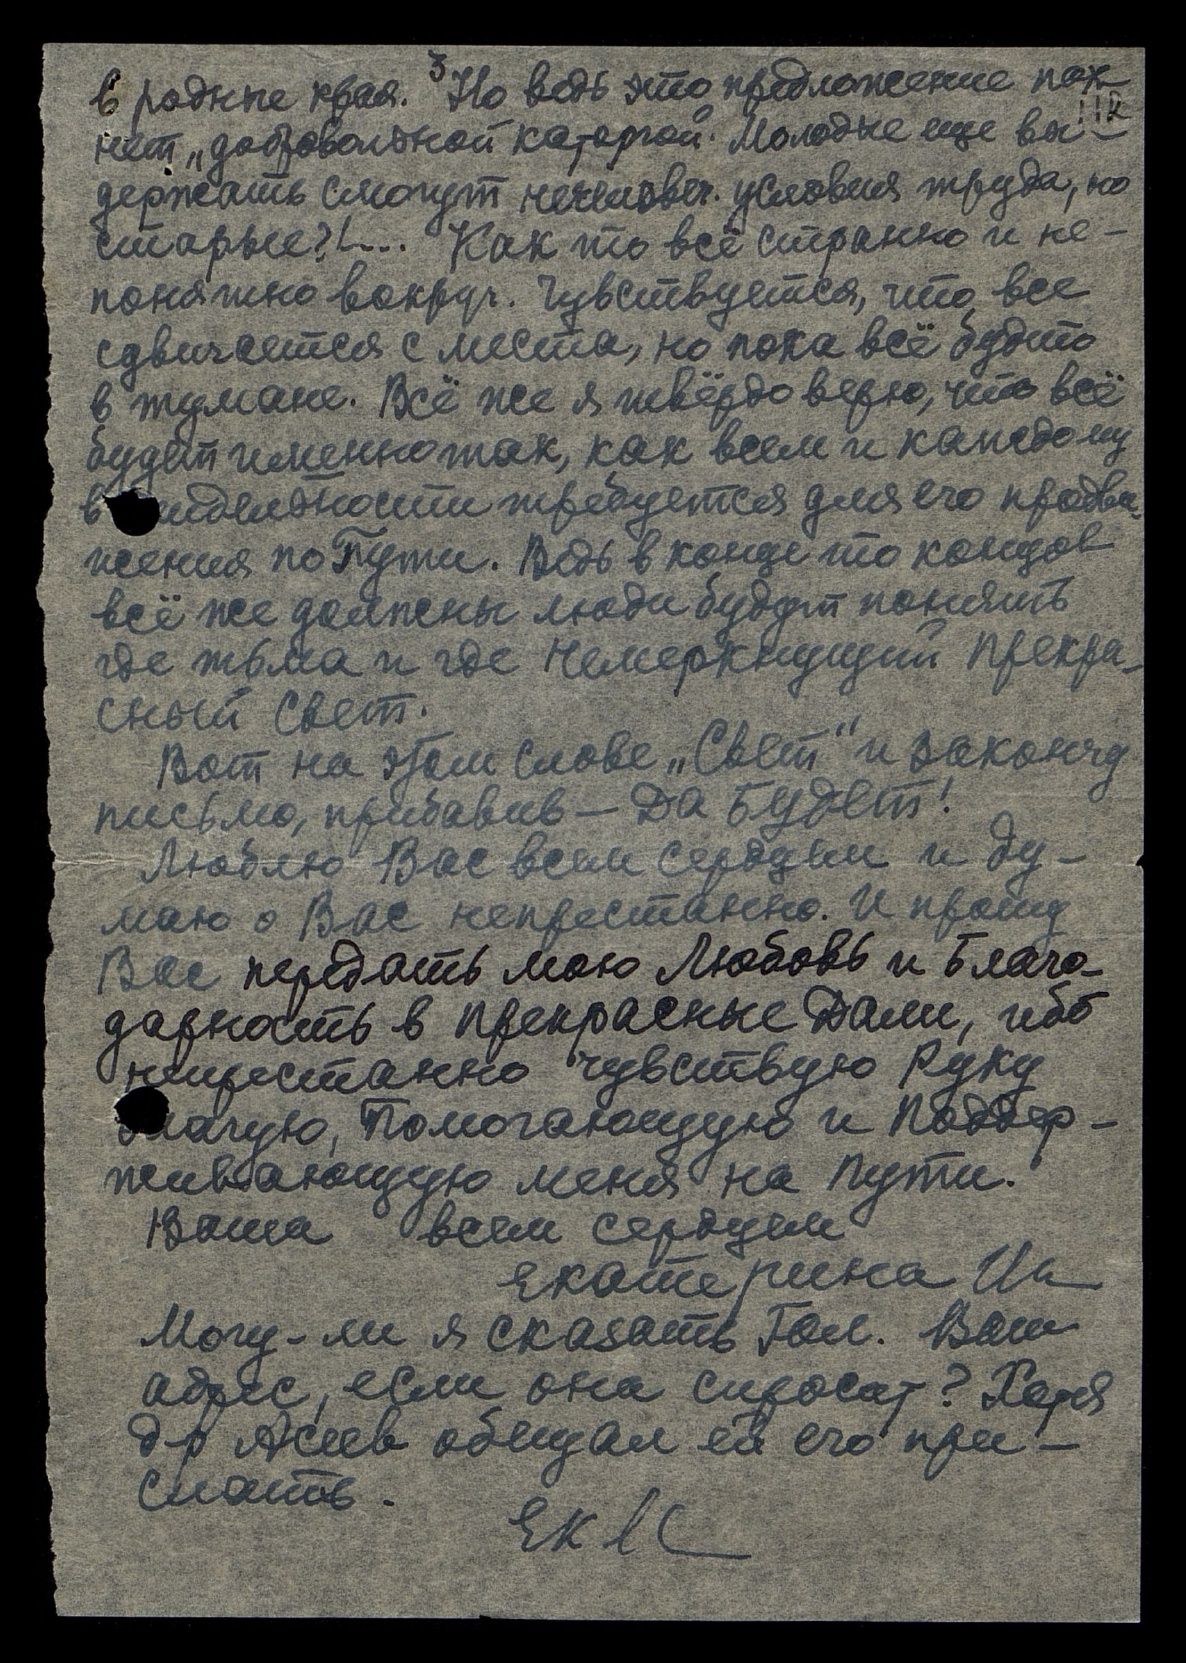 3
в родные края. Но ведь это предложение пах-
нет „добровольной каторгой. Молодые еще вы-
держать смогут нечеловеч. условия труда, но
старые?!... Как то всё странно и не-
понятно вокруг. Чувствуется, что все
сдвигается с места, но пока всё будто
в тумане. Всё же я твёрдо верю, что всё
будет именно так, как всем и каждому
в требуется для его продви-
жения по Пути. Ведь в конце то концов
всё же должны люди будут понять
где тьма и где Немеркнущий Прекра-
сный Свет.
Вот на этом слове „Свет" и закончу
письмо, прибавив — Да Будет!
Люблю Вас всем сердцем и ду-
маю о Вас непрестанно. И прошу
Вас передать мою Любовь и Благо-
дарность в Прекрасные Дали, ибо
непрестанно чувствую Руку
Благую, Помогающую и Поддер-
живающую меня на Пути.
Ваша всем сердцем
Екатерина
Могу-ли я сказать Гал. Ваш
адрес, если она спросит? Хотя
д-р Асеев обещал ей его при-
слать.